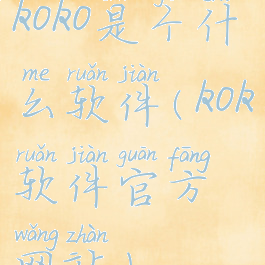 koko是个什
me ruǎn jiàn
么软件(kok
ruǎn jiàn guān fāng
软件官方
wǎng zhàn
网站)